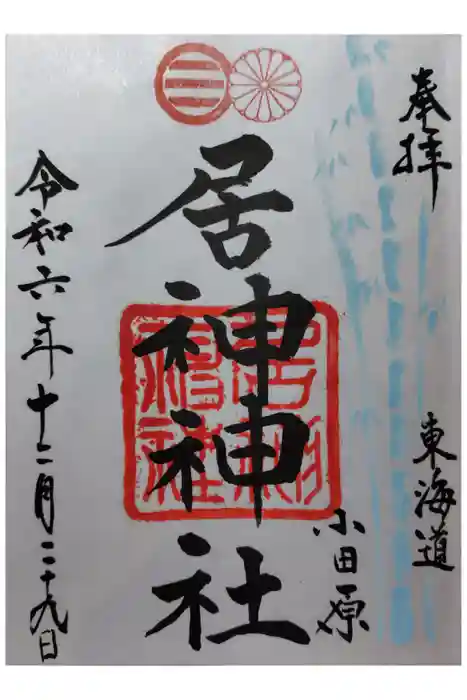 奉拝
東海道
小田原
居神神社
令和六年十二月二十九日